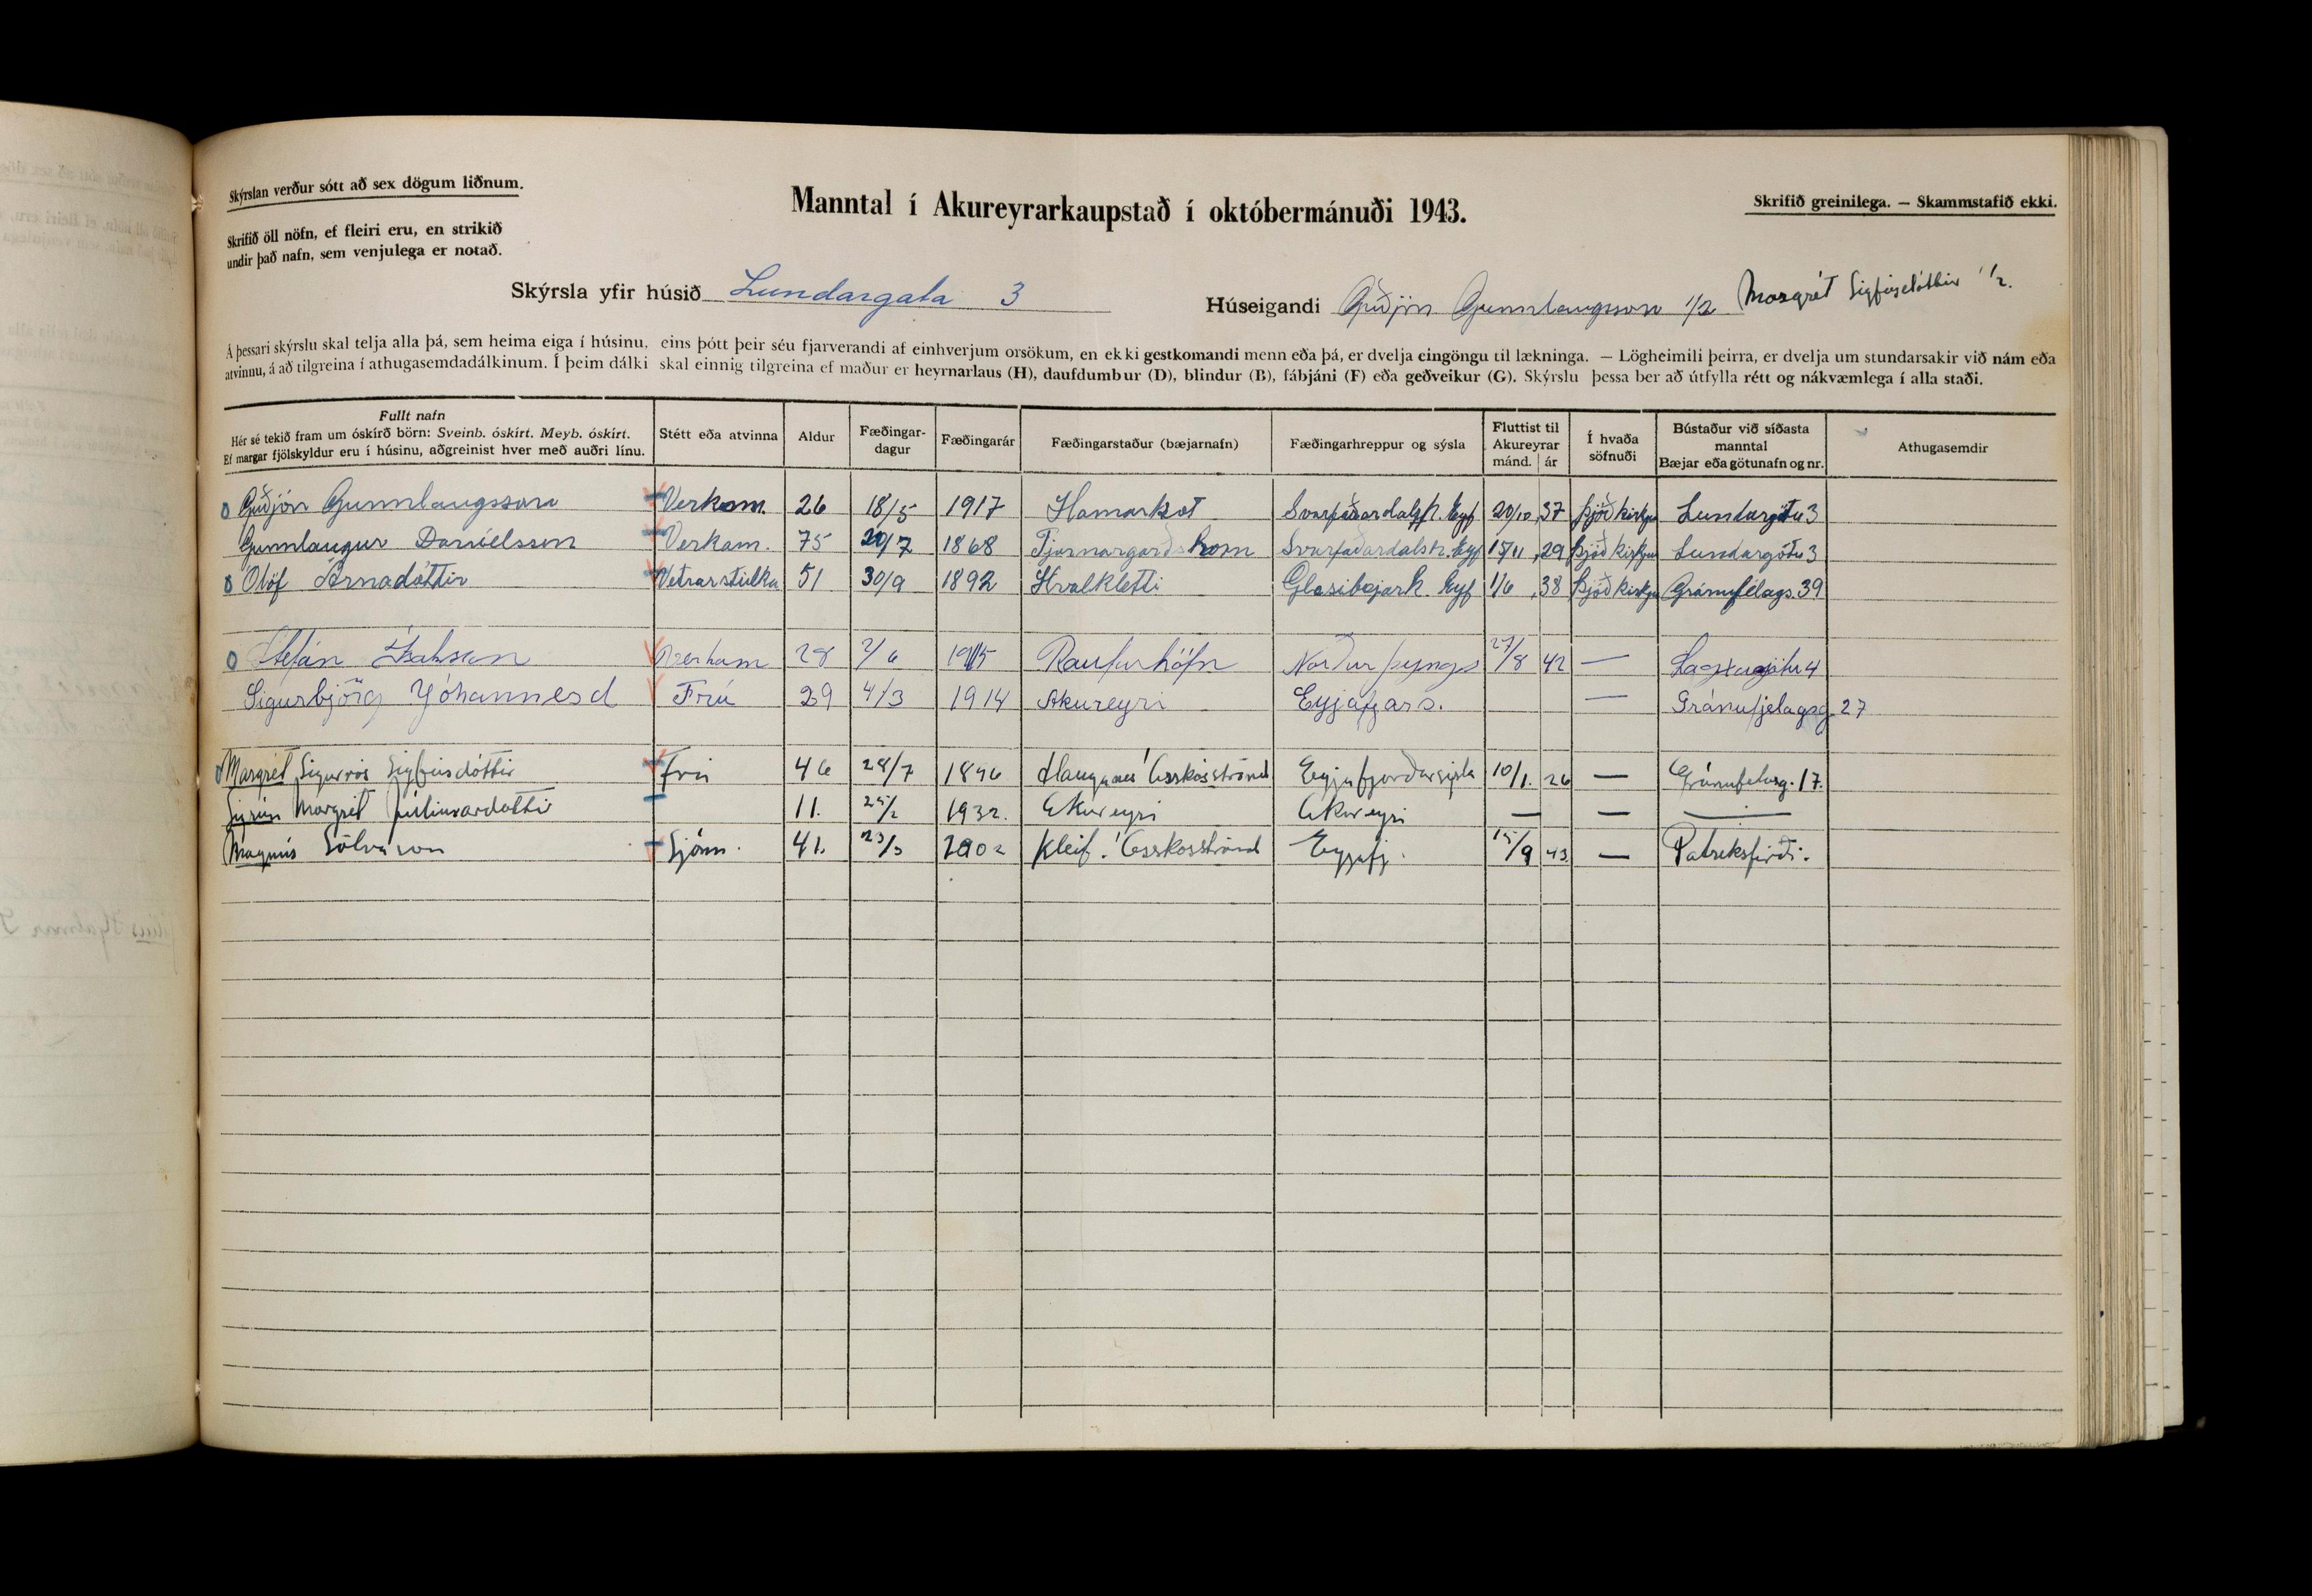 Skýrslan verður sótt að sex dögum liðnum.
Skrifið öll nöfn, ef fleiri eru, en strikið
undir það nafn, sem venjulega er notað.
Manntal í Akureyrarkaupstað í októbermánuði 1943.
Skrifið greinilega. — Skammstafið ekki.
Skýrsla yfir húsið Lundargata 3
Húseigandi Guðjón Gunnlaugsson 1/2 Margrét Sigfúsdóttir 1/2.
Á þessari skýrslu skal telja alla þá, sem heima eiga í húsinu, eins þótt þeir séu fjarverandi af einhverjum orsökum, en ekki gestkomandi menn eða þá, er dvelja eingöngu til lækninga. — Lögheimili þeirra, er dvelja um stundarsakir við nám eða
atvinnu, á að tilgreina í athugasemdadálkinum. Í þeim dálki skal einnig tilgreina ef maður er heyrnarlaus (H), daufdumbur (D), blindur (B), fábjáni (F) eða geðveikur (G). Skýrslu þessa ber að útfylla rétt og nákvæmlega í alla staði.
Fullt nafn
Hér sé tekið fram um óskírð börn: Sveinb. óskírt. Meyb. óskírt.
Ef margar fjölskyldur eru í húsinu, aðgreinist hver með auðri línu.
Stétt eða atvinna
Aldur
Fæðingar-
dagur
Fæðingarár
Fæðingarstaður (bæjarnafn)
Fæðingarhreppur og sýsla
Fluttist til
Akureyrar
mánd. ár
Í hvaða
söfnuði
Bústaður við síðasta
manntal
Bæjar eða götunafn og nr.
Athugasemdir
Guðjón Gunnlaugsson Verkam. 26 18/5 1917 Hamarkot Svarfaðardalshr. Eyf 20/10 37 Þjóðkirkju Lundargötu 3
Gunnlaugur Daníelsson Verkam. 75 20/7 1868 Tjarnargarðshorn Svarfaðardalshr. Eyf 15/11 29 Þjóðkirkju Lundargötu 3
Ólöf Árnadóttir Vetrarstúlka 51 30/9 1892 Hvalkletti Glæsibæjarh. Eyf 1/6 38 Þjóðkirkju Gránufélags. 39
Stefán Verkam 28 2/6 1915 Raufarhöfn Norður þyngs 27/8 42 —
Sigurbjörg Jóhannesd Frú 29 4/3 1914 Akureyri Eyjafjars. — Gránufjelagsg. 27
Margrét Sigurrós Sigfúsdóttir Frú 46 28/7 1896 Árskósströnd Eyjafjorðarsýsla 10/1. 26 — Gránufelagsg. 17.
Sigrún Margrét Júlíusardótti 11. 25/2 1932. Akureyri Akureyri — — —
Magnús Sölvason Sjóm. 41. 23/3 1902 Kleif. Árskosströnd Eyjafj. 15/9 43 — Patreksfirði.